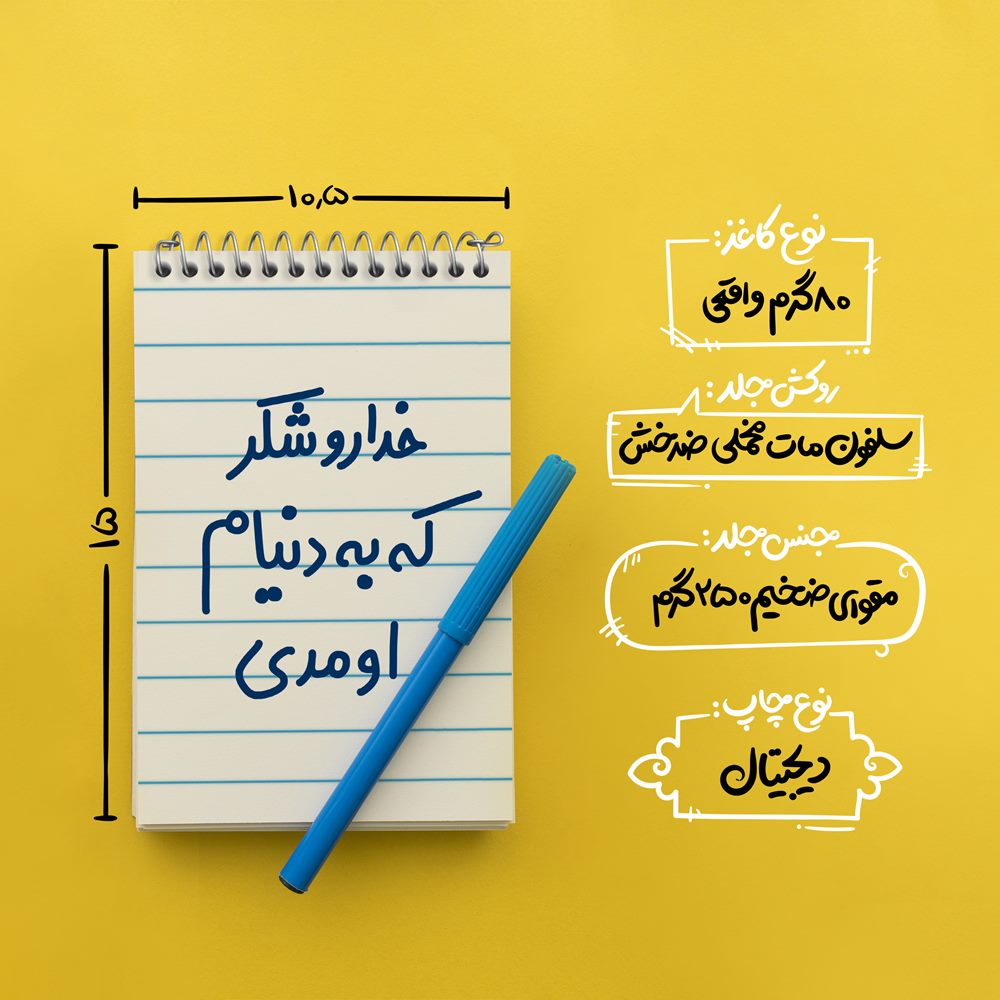 ۱۰٫۵
۱۵
خدا رو شکر
که به دنیام
اومدی
نوع کاغذ:
۸۰ گرم واقعی
روکش جلد:
سلفون مات مخملی ضدخش
جنس جلد:
مقوای ضخیم ۲۵۰ گرم
نوع چاپ:
دیجیتال